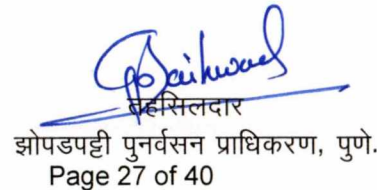 तहसिलदार
झोपडपट्टी पुनर्वसन प्राधिकरण, पुणे.
Page 27 of 40